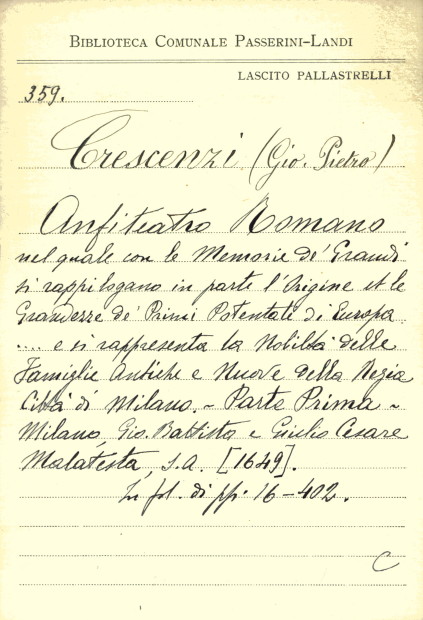 BIBLIOTECA COMUNALE PASSERINI-LANDI
LASCITO PALLASTRELLI
359.
Crescenzi (Gio. Pietro)
Anfiteatro Romano
nel quale con le Memorie de' Grandi
si rappilogano in parte l'Origine et le
Grandezze de' Primi Potentati di Europa
.... e si rappresenta la Nobiltà delle
Famiglie Antiche e Nuove della Regia
Città di Milano. - Parte Prima -
Milano, Gio. Battista e Giulio Cesare
Malatesta, s.a. [1649].
In fol. di pp. 16-402.
C